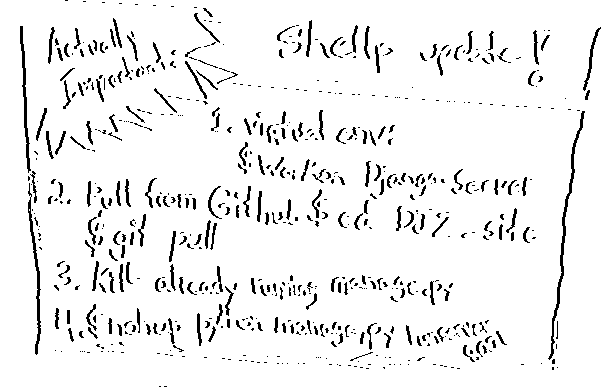 Actually
Important:
Shellp update!
1. virtual env:
$ workon Django-Server
2. Pull from Github $ cd -site
$ git pull
3. Kill already runing manage.py
4. $ nohup python manage.py runserver